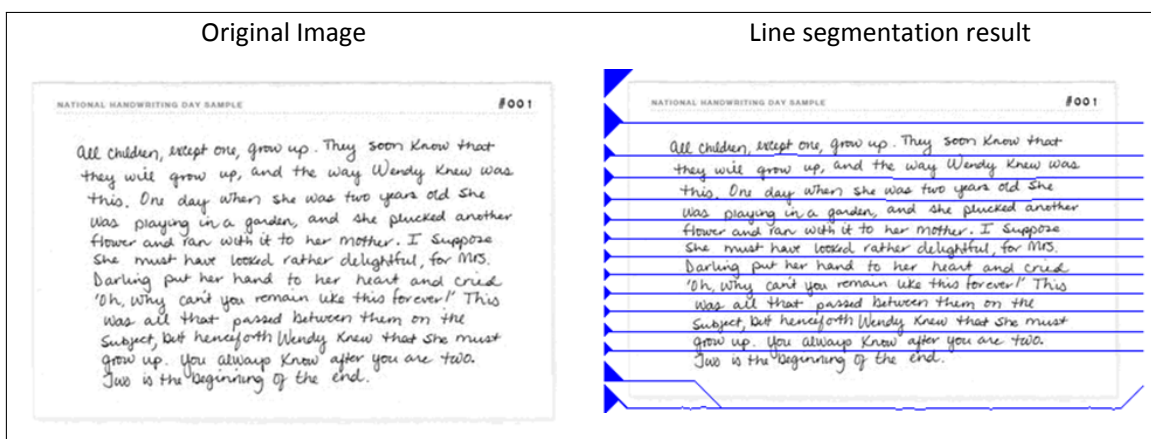 Original Image
Line segmentation result
NATIONAL HANDWRITING DAY SAMPLE #001
All children, except one, grow up. They soon know that
they will grow up, and the way Wendy knew was
this. One day when she was two years old she
was playing in a garden, and she plucked another
flower and ran with it to her mother. I suppose
she must have looked rather delightful, for Mrs.
Darling put her hand to her heart and cried
'Oh, why can't you remain like this forever!' This
was all that passed between them on the
subject, but henceforth Wendy knew that she must
grow up. You always know after you are two.
Two is the beginning of the end.
NATIONAL HANDWRITING DAY SAMPLE #001
All children, except one, grow up. They soon know that
they will grow up, and the way Wendy knew was
this. One day when she was two years old she
was playing in a garden, and she plucked another
flower and ran with it to her mother. I suppose
she must have looked rather delightful, for Mrs.
Darling put her hand to her heart and cried
'Oh, why can't you remain like this forever!' This
was all that passed between them on the
subject, but henceforth Wendy knew that she must
grow up. You always know after you are two.
Two is the beginning of the end.